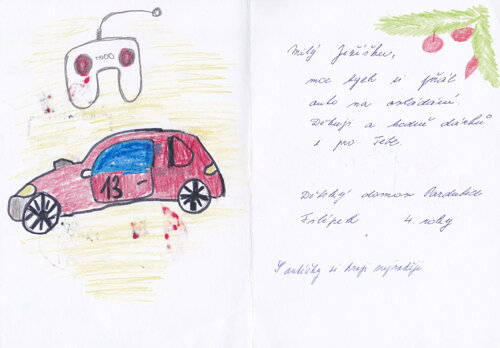 13
Milý Ježíšku,
moc bych si přál
auto na ovládání.
Děkuji a hodně dárků
i pro Tebe.
Dětský domov Pardubice
Filípek 4. roky
S autíčky si hraji nejraději